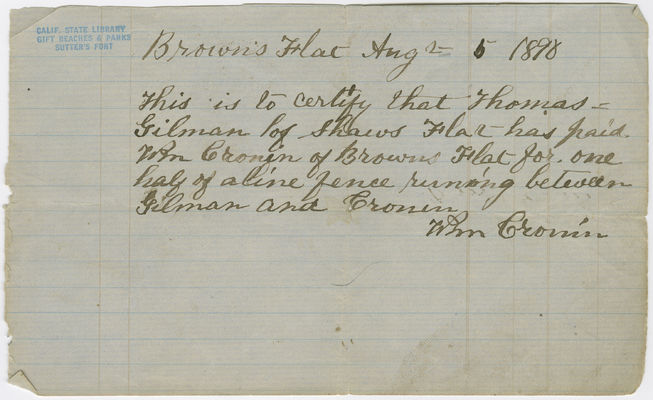 CALIF. STATE LIBRARY
GIFT BEACHES & PARKS
SUTTER'S FORT
Brown's Flat Augst 5 1898
This is to certify that Thomas
Gilman of Shaws Flat has paid
Wm Cronin of Browns Flat for one
half of a line fence runing between
Gilman and Cronin
Wm Cronin